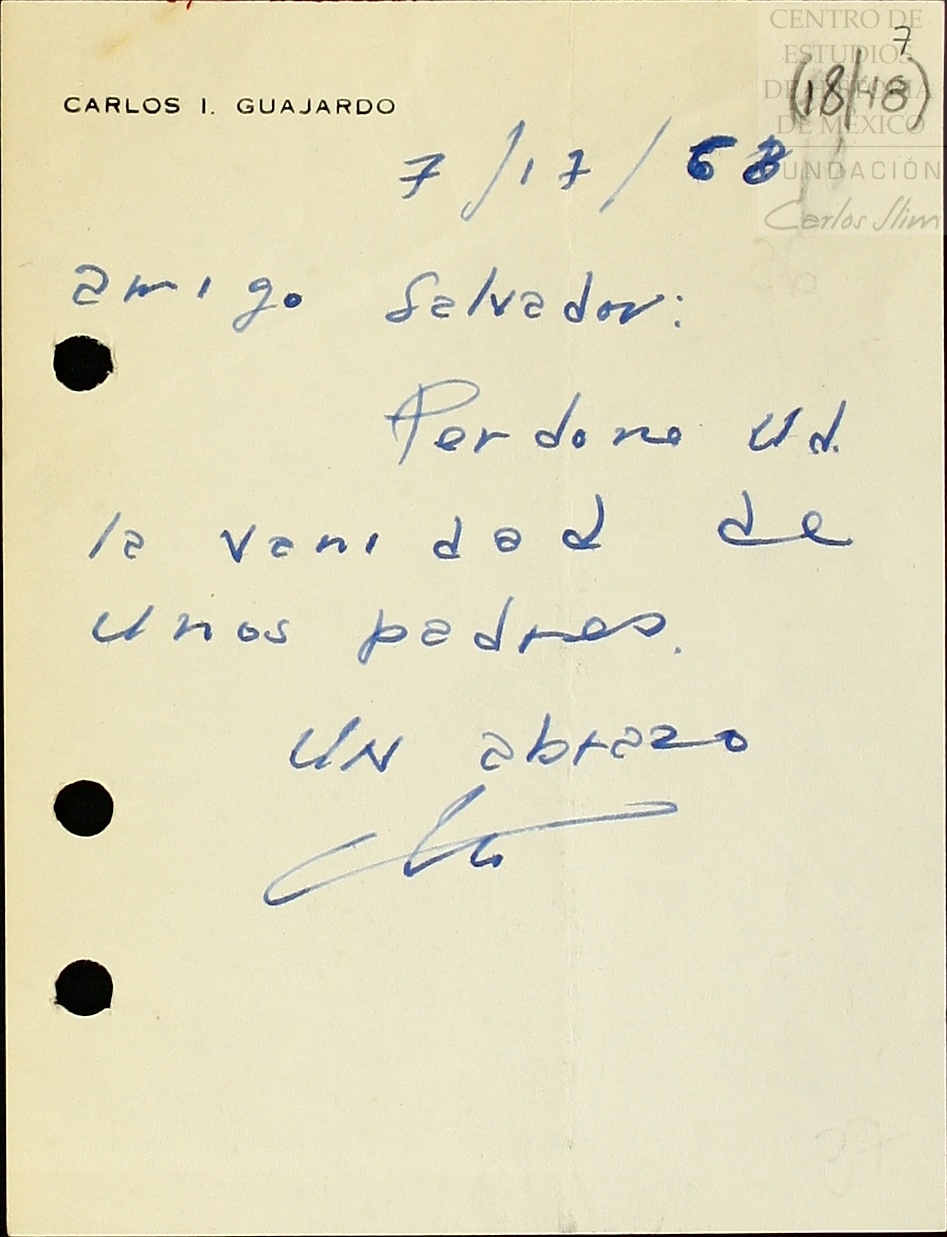 CENTRO DE
ESTUDIOS
DE HISTORIA
DE MÉXICO
FUNDACIÓN
Carlos Slim
7
(18/48)
CARLOS I. GUAJARDO
7/17/68
amigo Salvador:
Perdone Ud.
la vanidad de
unos padres.
UN abrazo
37